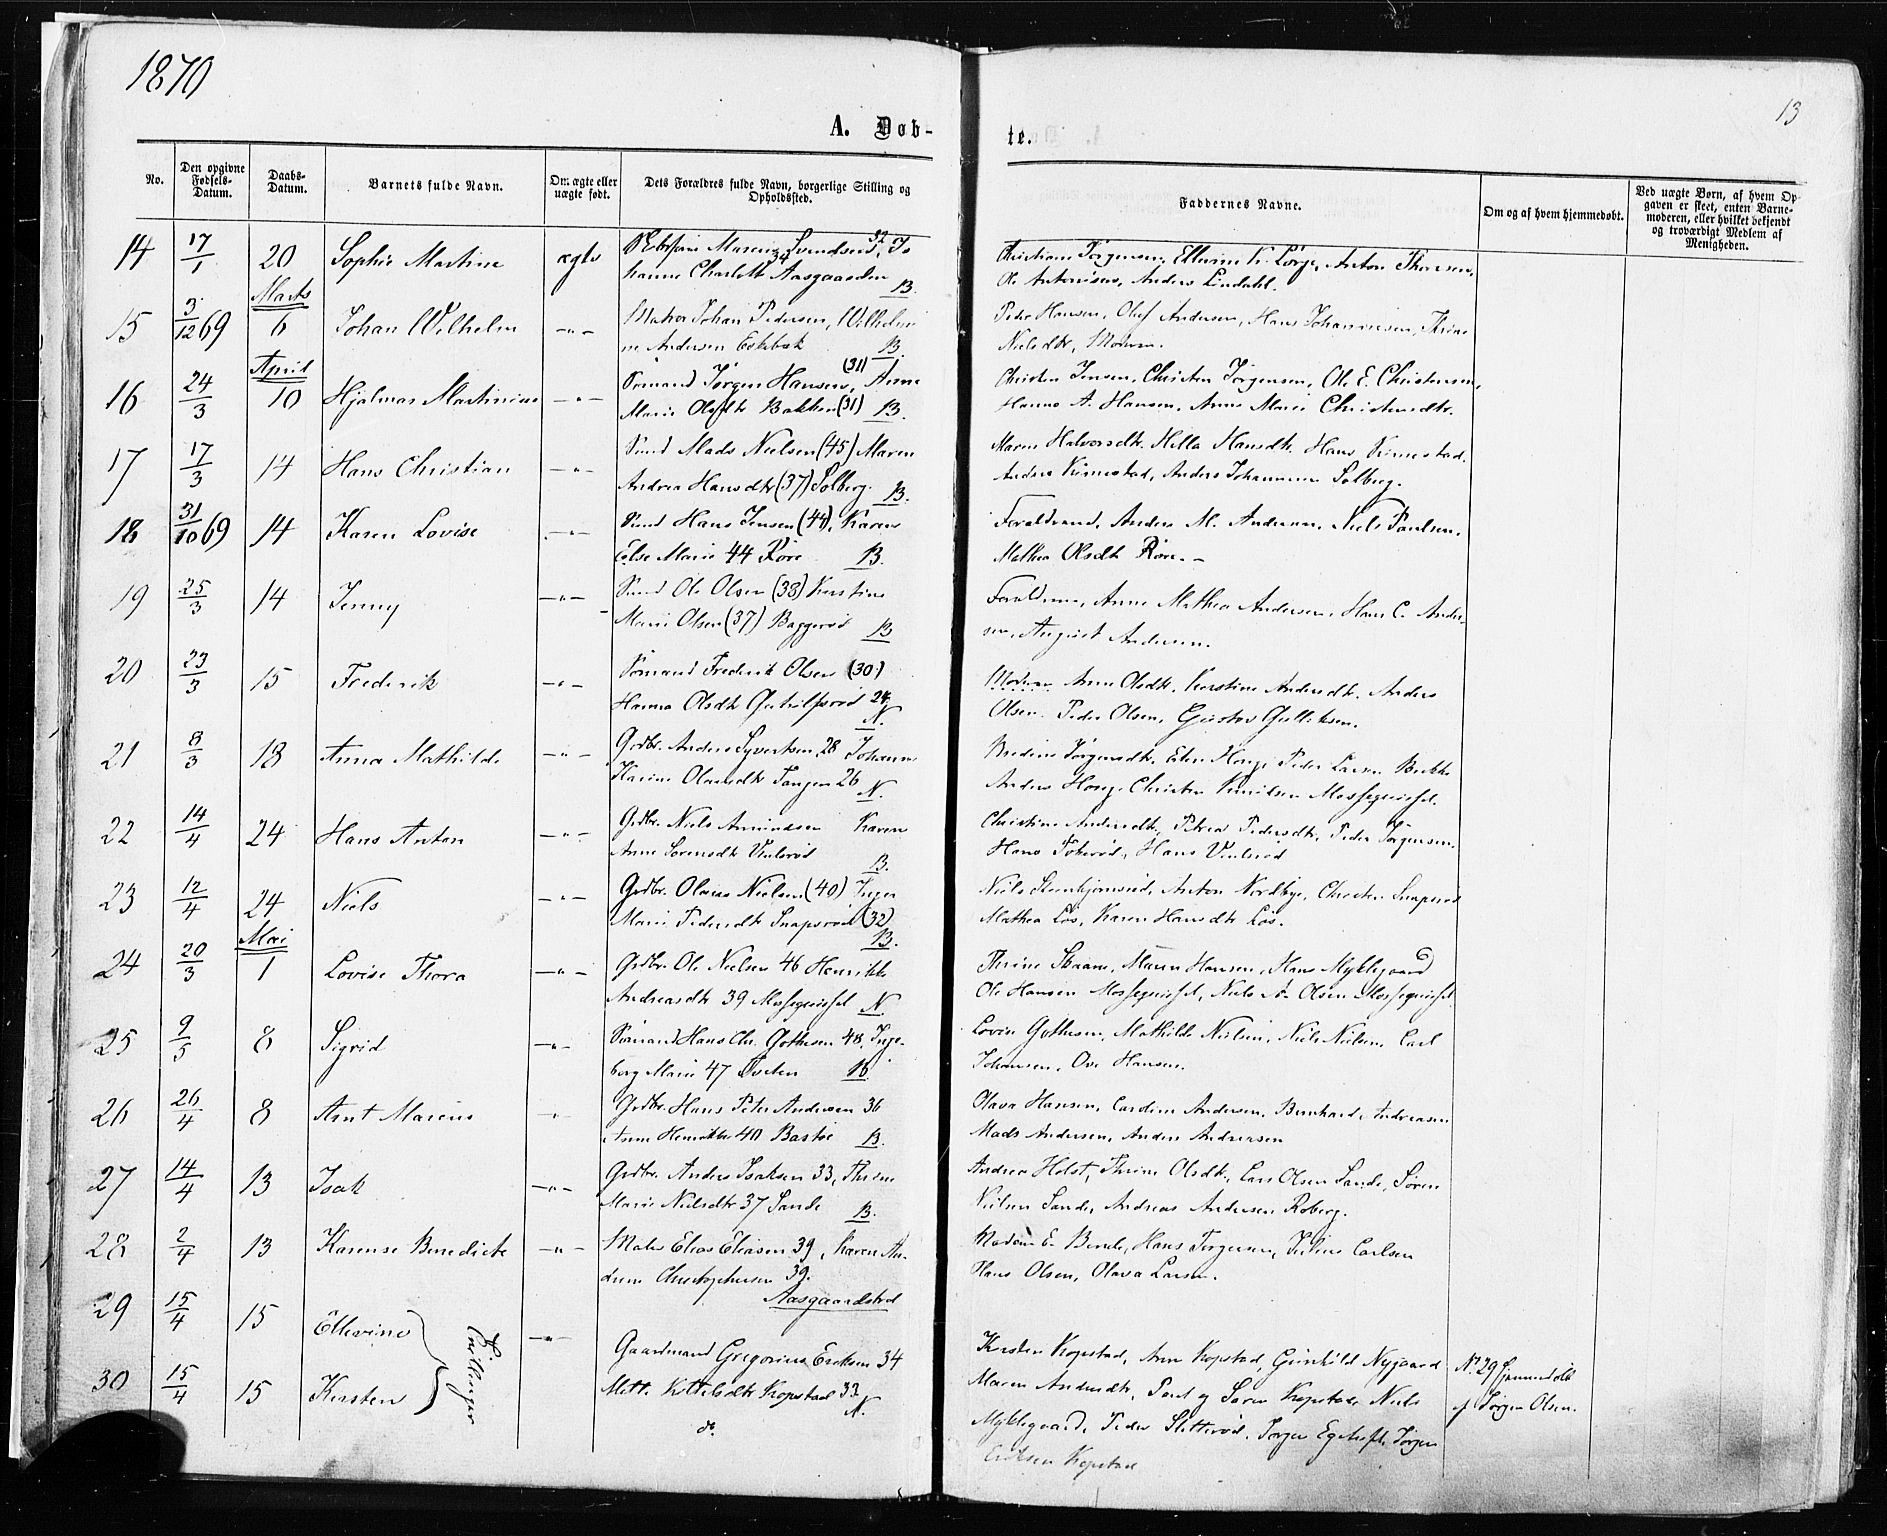 1870
13
A. Døb-
te.
No.
Den opgivne Fødsels-Datum.
Daabs-Datum.
Barnets fulde Navn.
Om ægte eller uægte født.
Dets Forældres fulde Navn, borgerlige Stilling og Opholdssted.
Faddernes Navne.
Om og af hvem hjemmedøbt.
Ved uægte Børn, af hvem Op-
gaven er skeet, enten Barne-
moderen, eller hvilket bekjendt
og troværdigt Medlem af
Menigheden.
14 17/1 20 Sophie Martine ægte Svendsen 32, Jo
hanne Charlotte Aasgaarden B.
Jørgensen, Anton Thoresen,
Ole Antonisen, Anders Lindahl.
Marts
15 3/12 69 6 Johan Wilhelm -"- Johan Pedersen, Wilhelmi
ne Andersen B.
Peder Hansen, Oluf Andersen, Hans Johannesen, Thrine
Nielsdtr, Moren.
April
16 24/3 10 Hjalmar Martinius -"- Sømand Jørgen Hansen (31), Anne
Marie Olsdtr Bakken (31) B.
Christen Jensen, Christen Jørgensen, Ole E. Christensen,
Hanna A. Hansen, Anne Marie Christensdtr.
17 17/3 14 Hans Christian -"- Smd Mads Nielsen (45) Maren
Andrea Hansdtr (37) Solberg. B.
Maren Halvorsdtr. Hella Hansdtr. Hans
Anders Johannesen Solberg.
18 31/10 69 14 Karen Lovise -"- Smd Hans Jensen (44), Karen
Else Marie 44 Røre B.
Forældrene, Anders M. Andersen, Niels Paulsen,
Mathea Olsdtr Røre. -
19 25/3 14 Jenny -"- Smd Ole Olsen (38) Kirstine
Marie Olsen (37) Baggerød B
Forældrene, Anne Mathea Andersen, Hans C. Ander-
sen, August Andersen.
20 23/3 15 Frederik -"- Sømand Frederik Olsen (30)
Hanna Olsdtr 24 N.
Moderen Anne Olsdtr, Kirstine Andersdtr. Anders
Olsen. Peder Olsen, Gustav Gulliksen.
21 8/3 18 Anna Mathilde -"- Grdbr. Anders Syvertsen, 28 Johanne
Karine Tangen 26 N.
Jørgensdtr, Peder Larsen
Anders Christen Knudsen
22 14/4 24 Hans Anton -"- Grdbr. Niels Amundsen Karen
Anne Sørensdtr B.
Christine Andersdtr, Petrea Pedersdtr, Peder Jørgensen,
Hans Hans
23 12/4 24 Niels -"- Grdbr. Olaus Nielsen (40) Inger
Marie Pedersdtr Snapsrød (32) B.
Niels Anton Nordbye, Christen Snapsrød
Mathea Løs, Karen Hansdtr Løs.
Mai
24 20/3 1 Lovise Thora -"- Grdbr. Ole Nielsen 46 Henrikke
Andreasdtr 39 N
Thrine Maren Hansen, Hans Myklegaard
Ole Hansen Niels Olsen
25 9/3 8 Sigrid -"- Sømand Hans Chr. Gothesen 48, Inge-
borg Marie 47 B.
Lovise Gothesen, Mathilde Nielsen, Niels Nielsen, Carl
Johansen, Ove Hansen.
26 26/4 8 Arnt Marius -"- Grdbr. Hans Peter Andersen 36
Anne Henrikke 40 Bastøe B.
Olava Hansen, Caroline Andersen, Bernhard Andreasen
Mads Andersen, Anders Andreasen
27 14/4 13 Isak -"- Grdbr. Anders Isaksen 33, Thrine
Marie Nielsdtr 37 Sande B.
Andrea Holst, Thrine Olsdtr, Lars Olsen Sande, Søren
Nielsen Sande, Andreas Andersen Roberg.
28 2/4 13 Karense Benedicte -"- Elias Eliasen 39, Karen An-
drine Christophersen 39.
Aasgaardstrd
Madam E. Hans Jørgensen, Julius Carlsen
Hans Olsen, Olava Larsen.
29 15/4 15 Ellevine
Tvillinger
-"-
30 15/4 15 Kirsten
Gaardmand Gregorius Eriksen 34
Mette Kittilsdtr Kopstad 33 N.
do.
Kirsten Kopstad, Anne Kopstad, Gunhild Nygaard
Maren Andersdtr, Poul og Søren Kopstad, Niels
Myklegaard, Peder Sletterød, Jørgen
Eriksen Kopstad
No 29 hjemmedøbt
af Jørgen Olsen.